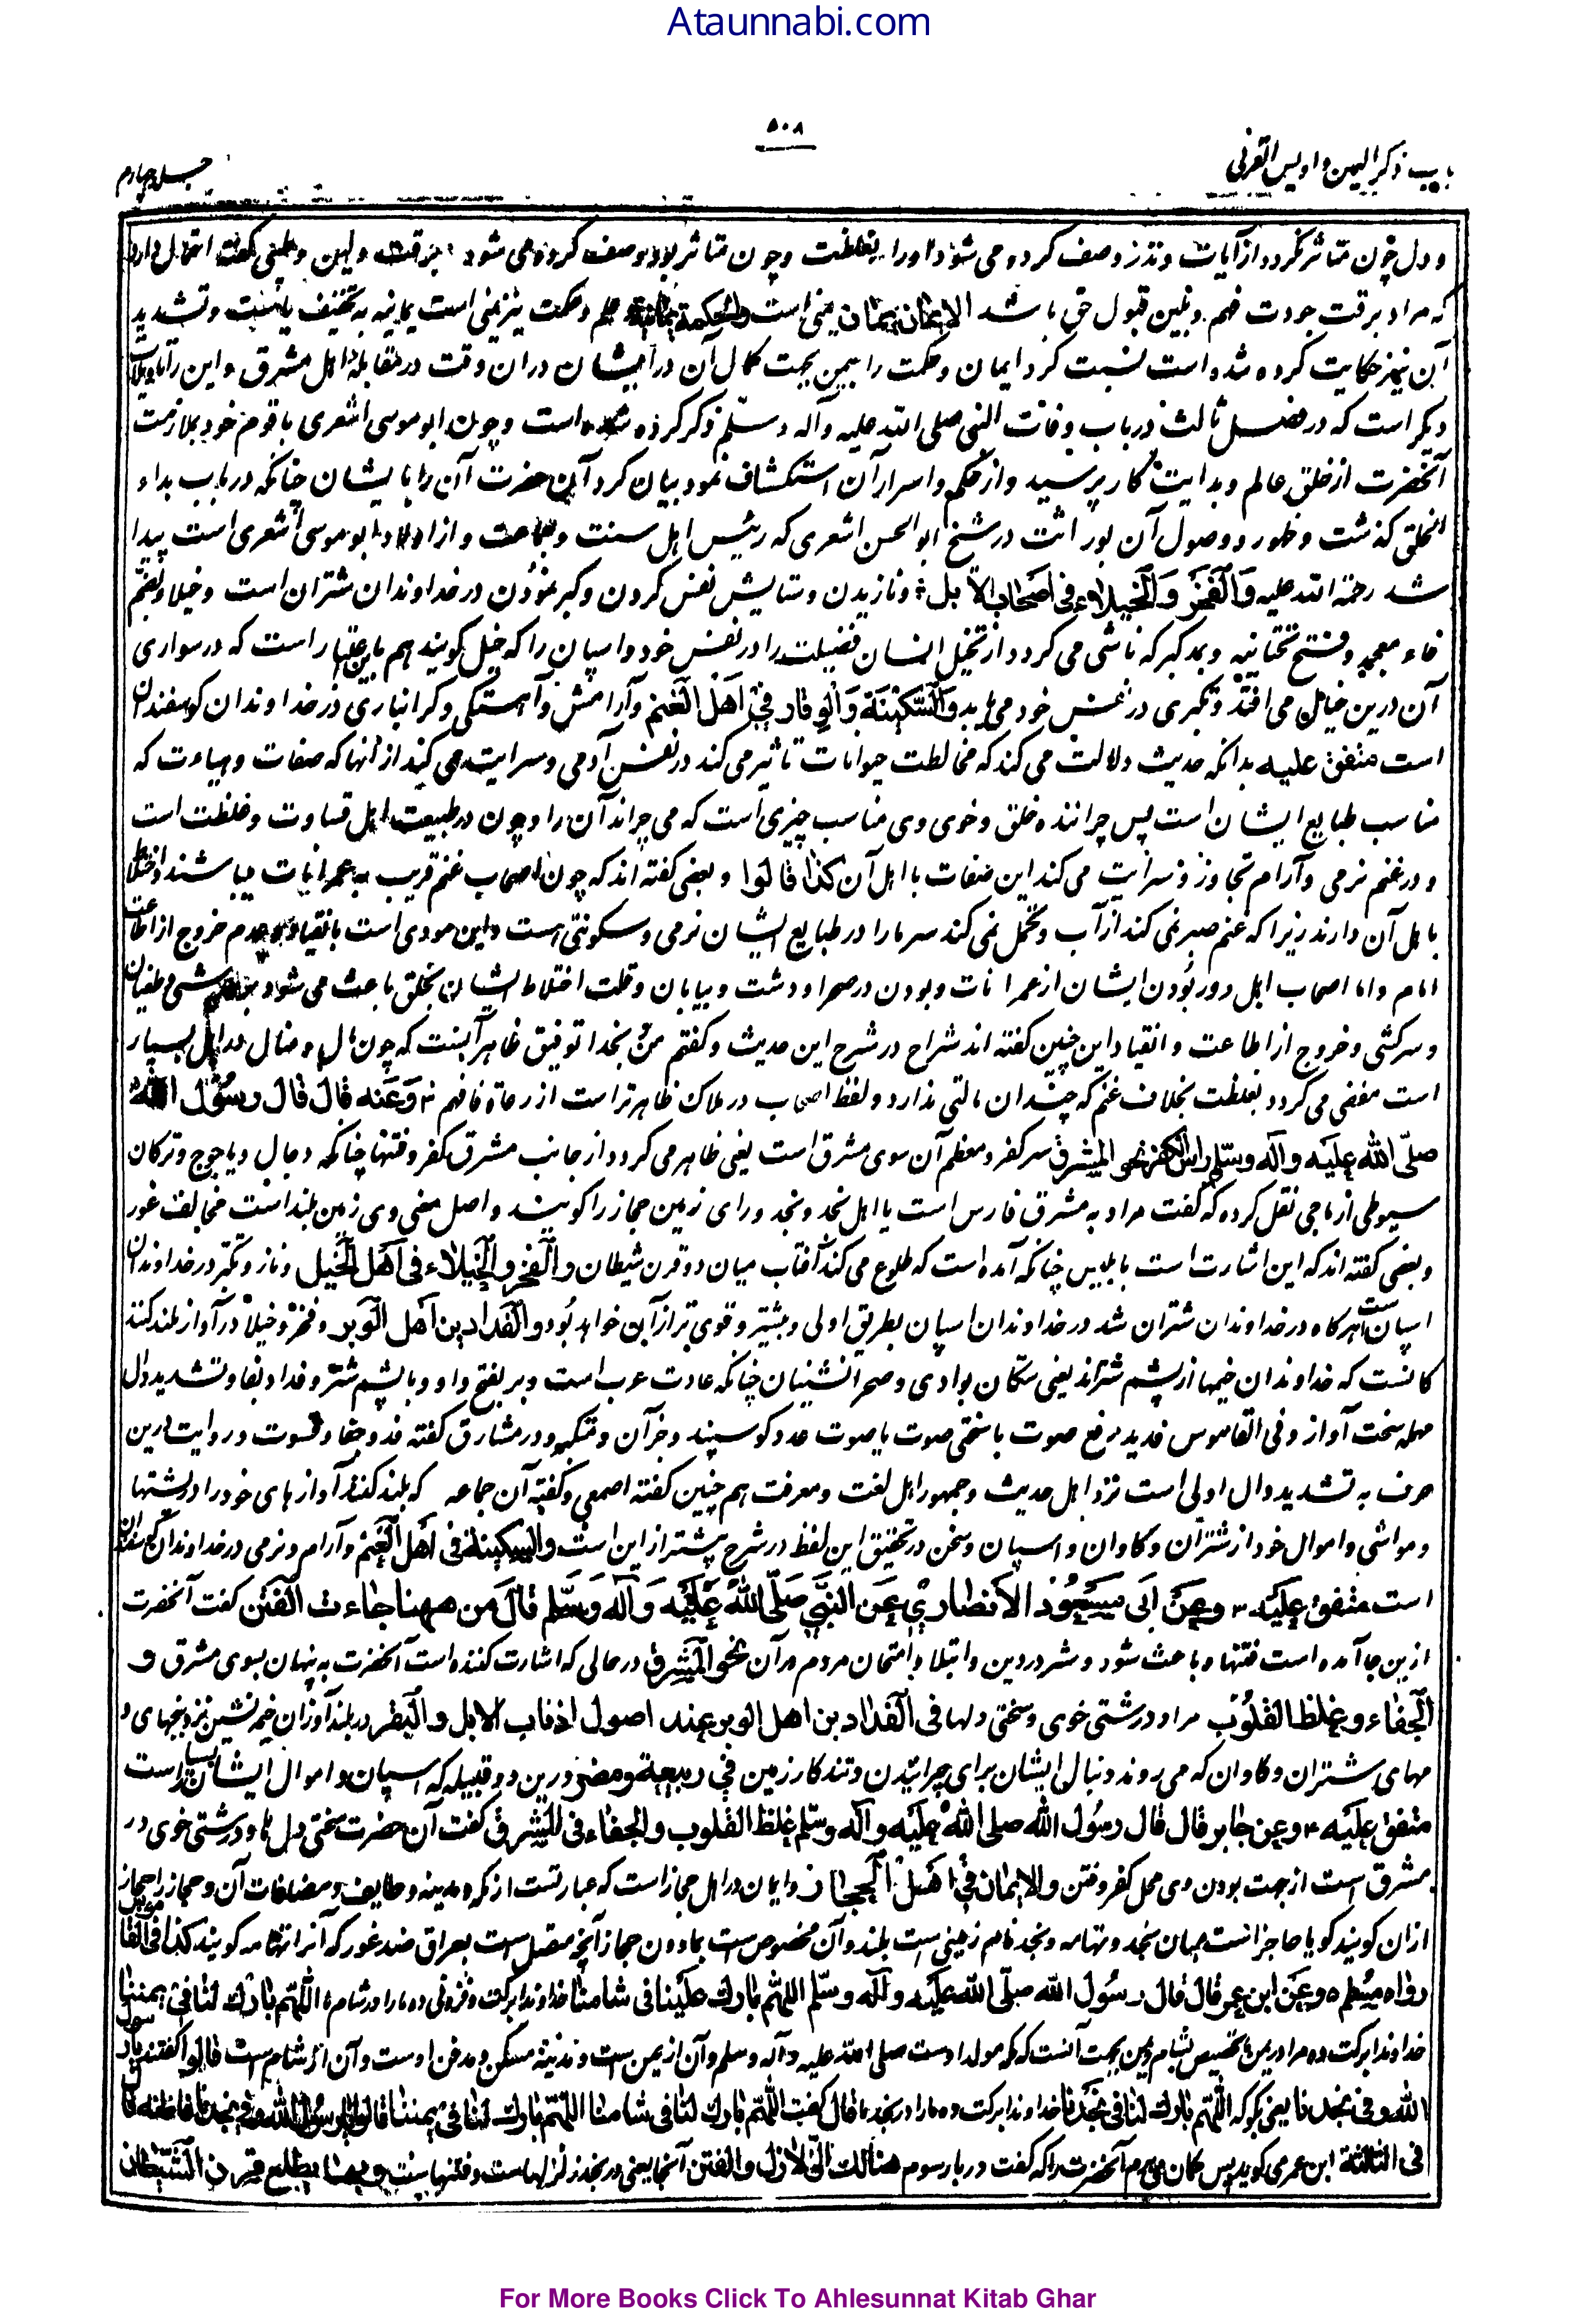 Ataunnabi.com
۵۰۸
باب ذکر الیمن و اویس القرنی
جلد چهارم
و دل چون متاثر گردد از آیات و نذر وصف کرده می شود اورا بغلظت و چون متاثر بود وصف کرده می شود برقت و لین و طیبی گفت احتمال دارد
که مراد برقت جودت فهم و بلین قبول حق باشد الایمان یمان یمنی است والحکمة یمانیة و حکمت نیز یمنی است یمانیه به تخفیف یا است و تشدید
آن نیز حکایت کرده شده است نسبت کرد ایمان و حکمت را بیمن بجهت کمال آن در ایشان در آن وقت در مقابلهٔ اهل مشرق و این را تاویلات
دیگر است که در فصل ثالث در باب وفات النبی صلی الله علیه وآله وسلم ذکر کرده شده است و چون ابو موسی اشعری با قوم خود بملازمت
آنحضرت از خلق عالم و بدایت کار پرسید و از حکم و اسرار آن استکشاف نمود بیان کرد آن حضرت آن را با ایشان چنانکه در باب بدء
الخلق گذشت و ظهور و وصول آن بوراثت در شیخ ابو الحسن اشعری که رئیس اهل سنت و جماعت و از اولاد ابو موسی اشعری است پیدا
شد رحمة الله علیه وَالْفَخْرُ وَالْخُیَلَاءُ فِی اَصْحَابِ الْاِبِلِ و نازیدن و ستایش نفس کردن و کبر نمودن در خداوندان شتران است و خیلا بضم
خاء معجمه و فتح تحتانیه و مد کبر که ناشی می گردد از تخیل انسان فضیلت را در نفس خود و اسپان را که خیل گویند هم باین اعتبار است که در سواری
آن درین خیال می افتد و تکبری در نفس خود می یابد وَالسَّکِیْنَةُ وَالْوَقَارُ فِیْ اَهْلِ الْغَنَمِ و آرامش و آهستگی و گرانباری در خداوندان گوسفندان
است متفق علیه بدانکه حدیث دلالت می کند که مخالطت حیوانات تاثیر می کند در نفس آدمی و سرایت می کند از انها که صفات و هیاءت که
مناسب طبایع ایشان است پس چراننده خلق و خوی وی مناسب چیزی است که می چراند آن را و چون در طبیعت ابل قساوت و غلظت است
و در غنم نرمی و آرام تجاوز و سرایت می کند این صفات با اهل آن کذا قالوا و بعضی گفته اند که چون اصحاب غنم قریب به عمرانات میباشند و اختلاط
با اهل آن دارند زیرا که غنم صبر نمی کند از آب و تحمل نمی کند سرما را در طبایع ایشان نرمی و سکونتی است و این مودی است بانقیاد و عدم خروج از اطاعت
امام و اما اصحاب ابل دور بودن ایشان از عمرانات و بودن در صحرا و دشت و بیابان و قلت اختلاط ایشان بخلق باعث می شود و طغیان
و سرکشی و خروج از اطاعت و انقیاد این چنین گفته اند شراح در شرح این حدیث و گفتم من بخدا توفیق ظاهر آنست که چون مال و منال در ابل بسیار
است مفضی می گردد بغلظت بخلاف غنم که چندان مالتی ندارد و لفظ اصحاب در ملاک ظاهرتر است از رعاة فافهم ۲ وَعَنه قال قال رسُول الله
صلّی الله علیه وآله وسلم رأس الکفر نحو المشرق سر کفر و معظم آن سوی مشرق است یعنی ظاهر می گردد از جانب مشرق کفر و فتنها چنانکه دجال و یاجوج و ترکان
سیوطی از باجی نقل کرده که گفت مراد به مشرق فارس است یا اهل نجد و نجد ورای زمین حجاز را گویند و اصل معنی وی زمین بلند است مخالف غور
و بعضی گفته اند که این اشارت است بابلیس چنانکه آمده است که طلوع می کند آفتاب میان دو قرن شیطان والفخر والخیلاء فی اَهْل الْخَیْل و ناز و تکبر در خداوندان
اسپان است هرگاه در خداوندان شتران شد در خداوندان اسپان بطریق اولی و بیشتر و قوی تر از آن خواهد بود والفدادین اَهل الوَبَر و فخر و خیلا در آواز بلند کنند
کانست که خداوندان خیمها از پشم شترند یعنی سکان بوادی و صحرانشینان چنانکه عادت عرب است و بر بفتح واو و با پشم شتر و فداد بفا و تشدید دال
مهمله سخت آواز و فی القاموس فدید رفع صوت یا سختی صوت یا صوت عدو گوسپند و جز آن و متکبر و در مشارق گفته فدو جفا و قسوت و روایت درین
حرف به تشدید دال اولی است نزد اهل حدیث و جمهور اهل لغت و معرفت هم چنین گفته اصمعی و گفته آن جماعه که بلند کنند آوازهای خود را در کشتها
و مواشی و اموال خود از شتران و گاوان و اسپان و سخن در تحقیق این لفظ در شرح پیشتر از این است والسکینة فی اَهْل الْغَنَم و آرام و نرمی در خداوندان گوسفندان
است متفق علیه ۳ وعن ابی مَسْعُوْد الاَنصاریّ عَن النَّبِیّ صَلَّی اللهُ عَلَیْهِ وَآلِهِ وَسَلَّم قالَ مِن ههنا جاءت الفتن گفت آنحضرت
ازین جا آمده است فتنها و باعث شود و شر در دین و ابتلا و امتحان مردم در آن نحو المشرق در حالی که اشارت کننده است آنحضرت به پنهان بسوی مشرق و
الجفاء وغلظ القلوب مراد درشتی خوی و سختی دلها فی الفدادین اهل الوبر عند اصول اذناب الابل والبقر در بلند آوازان خیمه نشین نزد بیخهای
مهای شتران و گاوان که می روند دنبال ایشان برای چرانیدن و تند کار زمین فی ربیعة ومضر درین دو قبیله که اسپان و اموال ایشان بسیار است
متفق علیه ۴ وعن جابر قال قال رسُول الله صلی الله علیه وآله وسلم غلظ القلوب والجفاء فی المشرق گفت آن حضرت سختی دل ها و درشتی خوی در
مشرق است از جهت بودن وی محل کفر و فتن والایمان فی اهل الحجاز و ایمان در اهل حجاز است که عبارتست از مکه و مدینه و طایف و مضافات آن و حجاز را حجاز
ازان گویند گویا حاجز است میان نجد و تهامه و نجد نام زمینی است بلند و آن مخصوص است بمادون حجاز آنچه متصل است بعراق ضد غور که آنرا تهامه گویند کذا فی القاموس
رواه مسلم ۵ وعن ابن عمر قال قال رسُول الله صلّی الله علیه وآله وسلم اللهم بارك علینا فی شامنا خداوندا برکت و فزونی ده مارا در شام ما اللهم بارك لنا فی یمننا
خداوندا برکت ده مرا در یمن ما تخصیص بشام و یمن بجهت آنست که مکه مولد اوست صلی الله علیه وآله وسلم و آن از یمن است و مدینه مسکن و مدفن اوست و آن از شام است قالوا گفتند یا رسول
الله وفی نجدنا یعنی بگو که اللهم بارك لنا فی نجدنا خداوندا برکت ده مارا در نجد ما قال گفت اللهم بارك لنا فی شامنا اللهم بارك لنا فی یمننا قالوا یا رسول الله وفی نجدنا فاظنه قال
فی الثالثة ابن عمر می گوید پس گمان می برم آنحضرت را که گفت در بار سوم هنالك الزلازل والفتن آنجا یعنی در نجد زلزلهاست و فتنها ست وبها یطلع قرن الشیطان
For More Books Click To Ahlesunnat Kitab Ghar